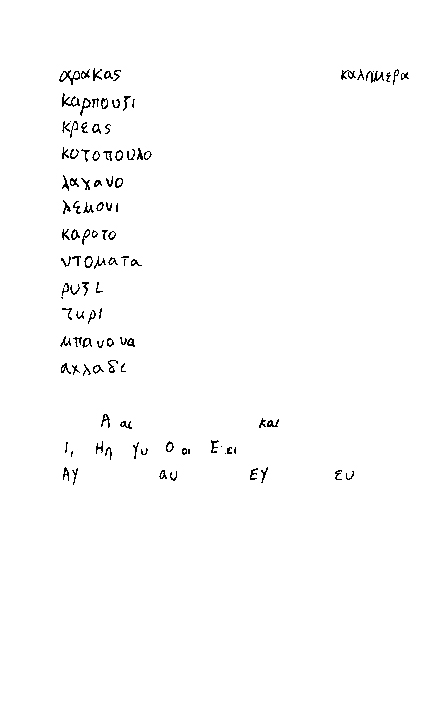 αρακας καλημερα
καρπουζι
κρεας
κοτοπουλο
λαχανο
λεμονι
καροτο
ντοματα
ρυζι
τυρι
μπανανα
αχλαδι
Α αι και
Ι, Ηη Υυ Ο οι Ε ει
ΑΥ αυ ΕΥ ευ